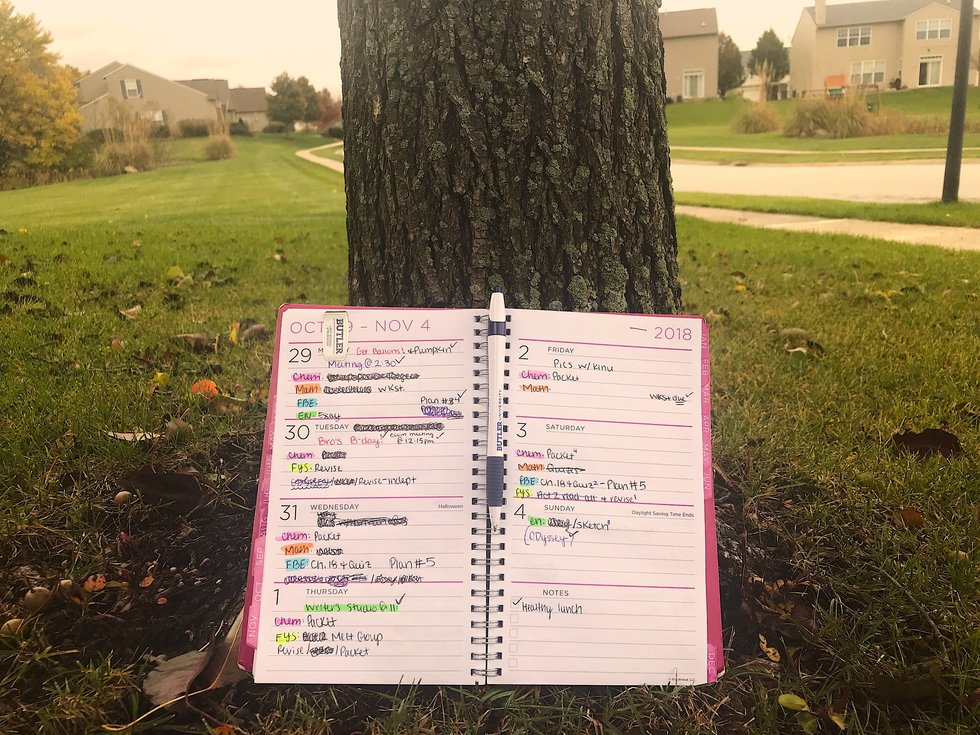 OCT 9 - NOV 4
BUTLER
29 M Get Balloons! & Pumpkin
Meeting @ 2:30
Chem:
Math: WKst.
FBE: Plan #4
EN: Essay
30 TUESDAY
Bro's B-day! Begin meeting
@ 12:15pm
Chem:
FYS: Revise
/Revise-indept
31 WEDNESDAY Halloween
Chem: Packet
Math:
FBE: Ch. 18 & Quiz Plan #5
1 THURSDAY
Writers Studio 6:11
Chem: Packet
FYS: Melt Group
Revise/ /Packet
BUTLER UNIVERSITY
2018
2 FRIDAY
Pics w/ Kinu
Chem: Packet
Math:
WKst due
3 SATURDAY
Chem: Packet
Math: Quizzes
FBE: Ch. 18 & Quiz - Plan #5
FYS: Act 2 read all & revise
4 SUNDAY Daylight Saving Time Ends
EN: /Sketch
(Odyssey)
NOTES
Healthy lunch
SEP
OCT
NOV
JAN
FEB
MAR
APR
DEC